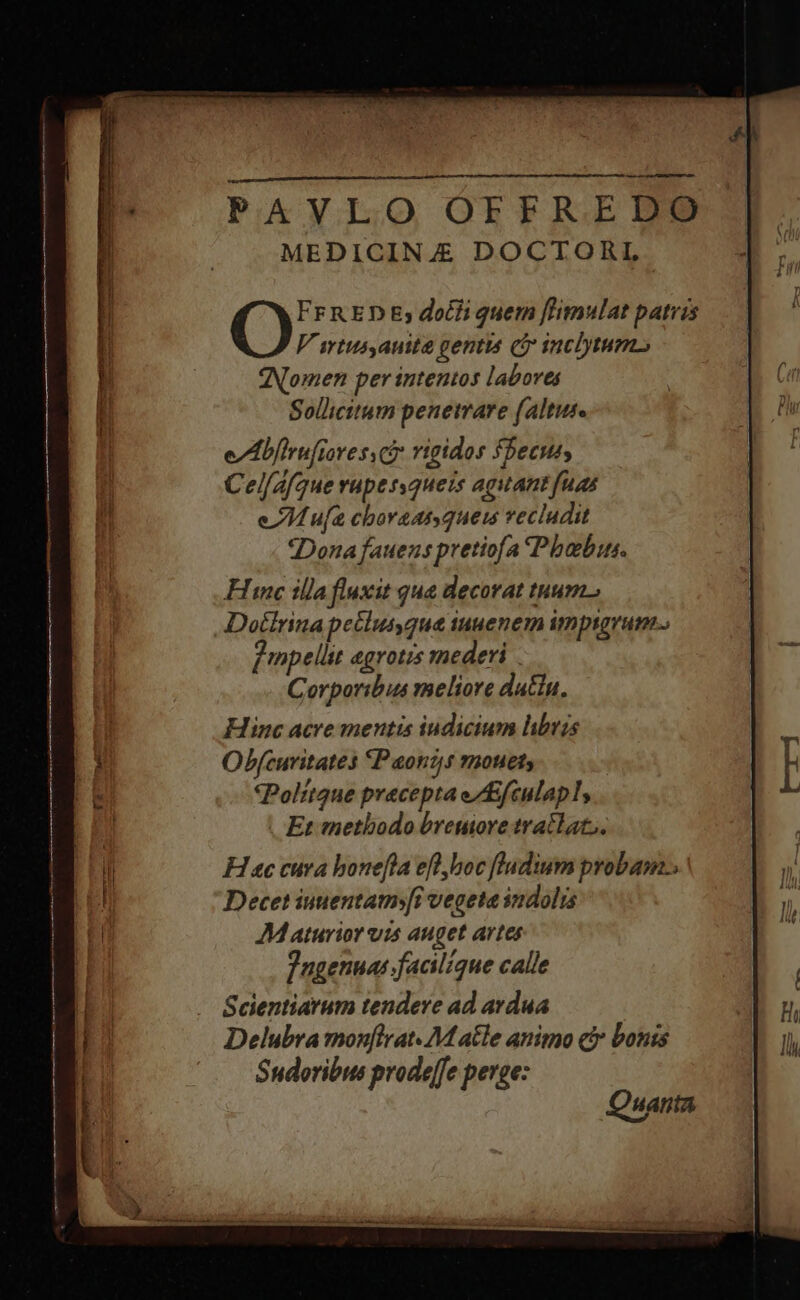 PAVLO OFFREDO
MEDICINÆ DOCTORI.
OFFREDE, docti quem ſtimulat patris
Virtus, auitæ gentis & inclytum
Nomen per intentos labores
Sollicitum penetrare ſaltus.
Abſtruſiores, & rigidos ſpecus,
Celſáſque rupes, queis agitant ſuas
Muſæ choræas, queis recludit
Dona fauens pretioſa Phœbus.
Hinc illa fluxit quæ decorat tuum
Doctrina pectus, quæ iuuenem impigrum
Impellit ægrotis mederi
Corporibus meliore ductu.
Hinc acre mentis iudicium libris
Obſcuritates Pæonijs mouet,
Politque præcepta ÆſculapI,
Et methodo breuiore tractat.
Hæc cura honeſta eſt, hoc ſtudium probam
Decet iuuentam, ſi vegetæ indolis
Maturior vis auget artes
Ingenuas, facilique calle
Scientiarum tendere ad ardua
Delubra monſtrat. Macte animo & bonis
Sudoribus prodeſſe perge:
Quanta